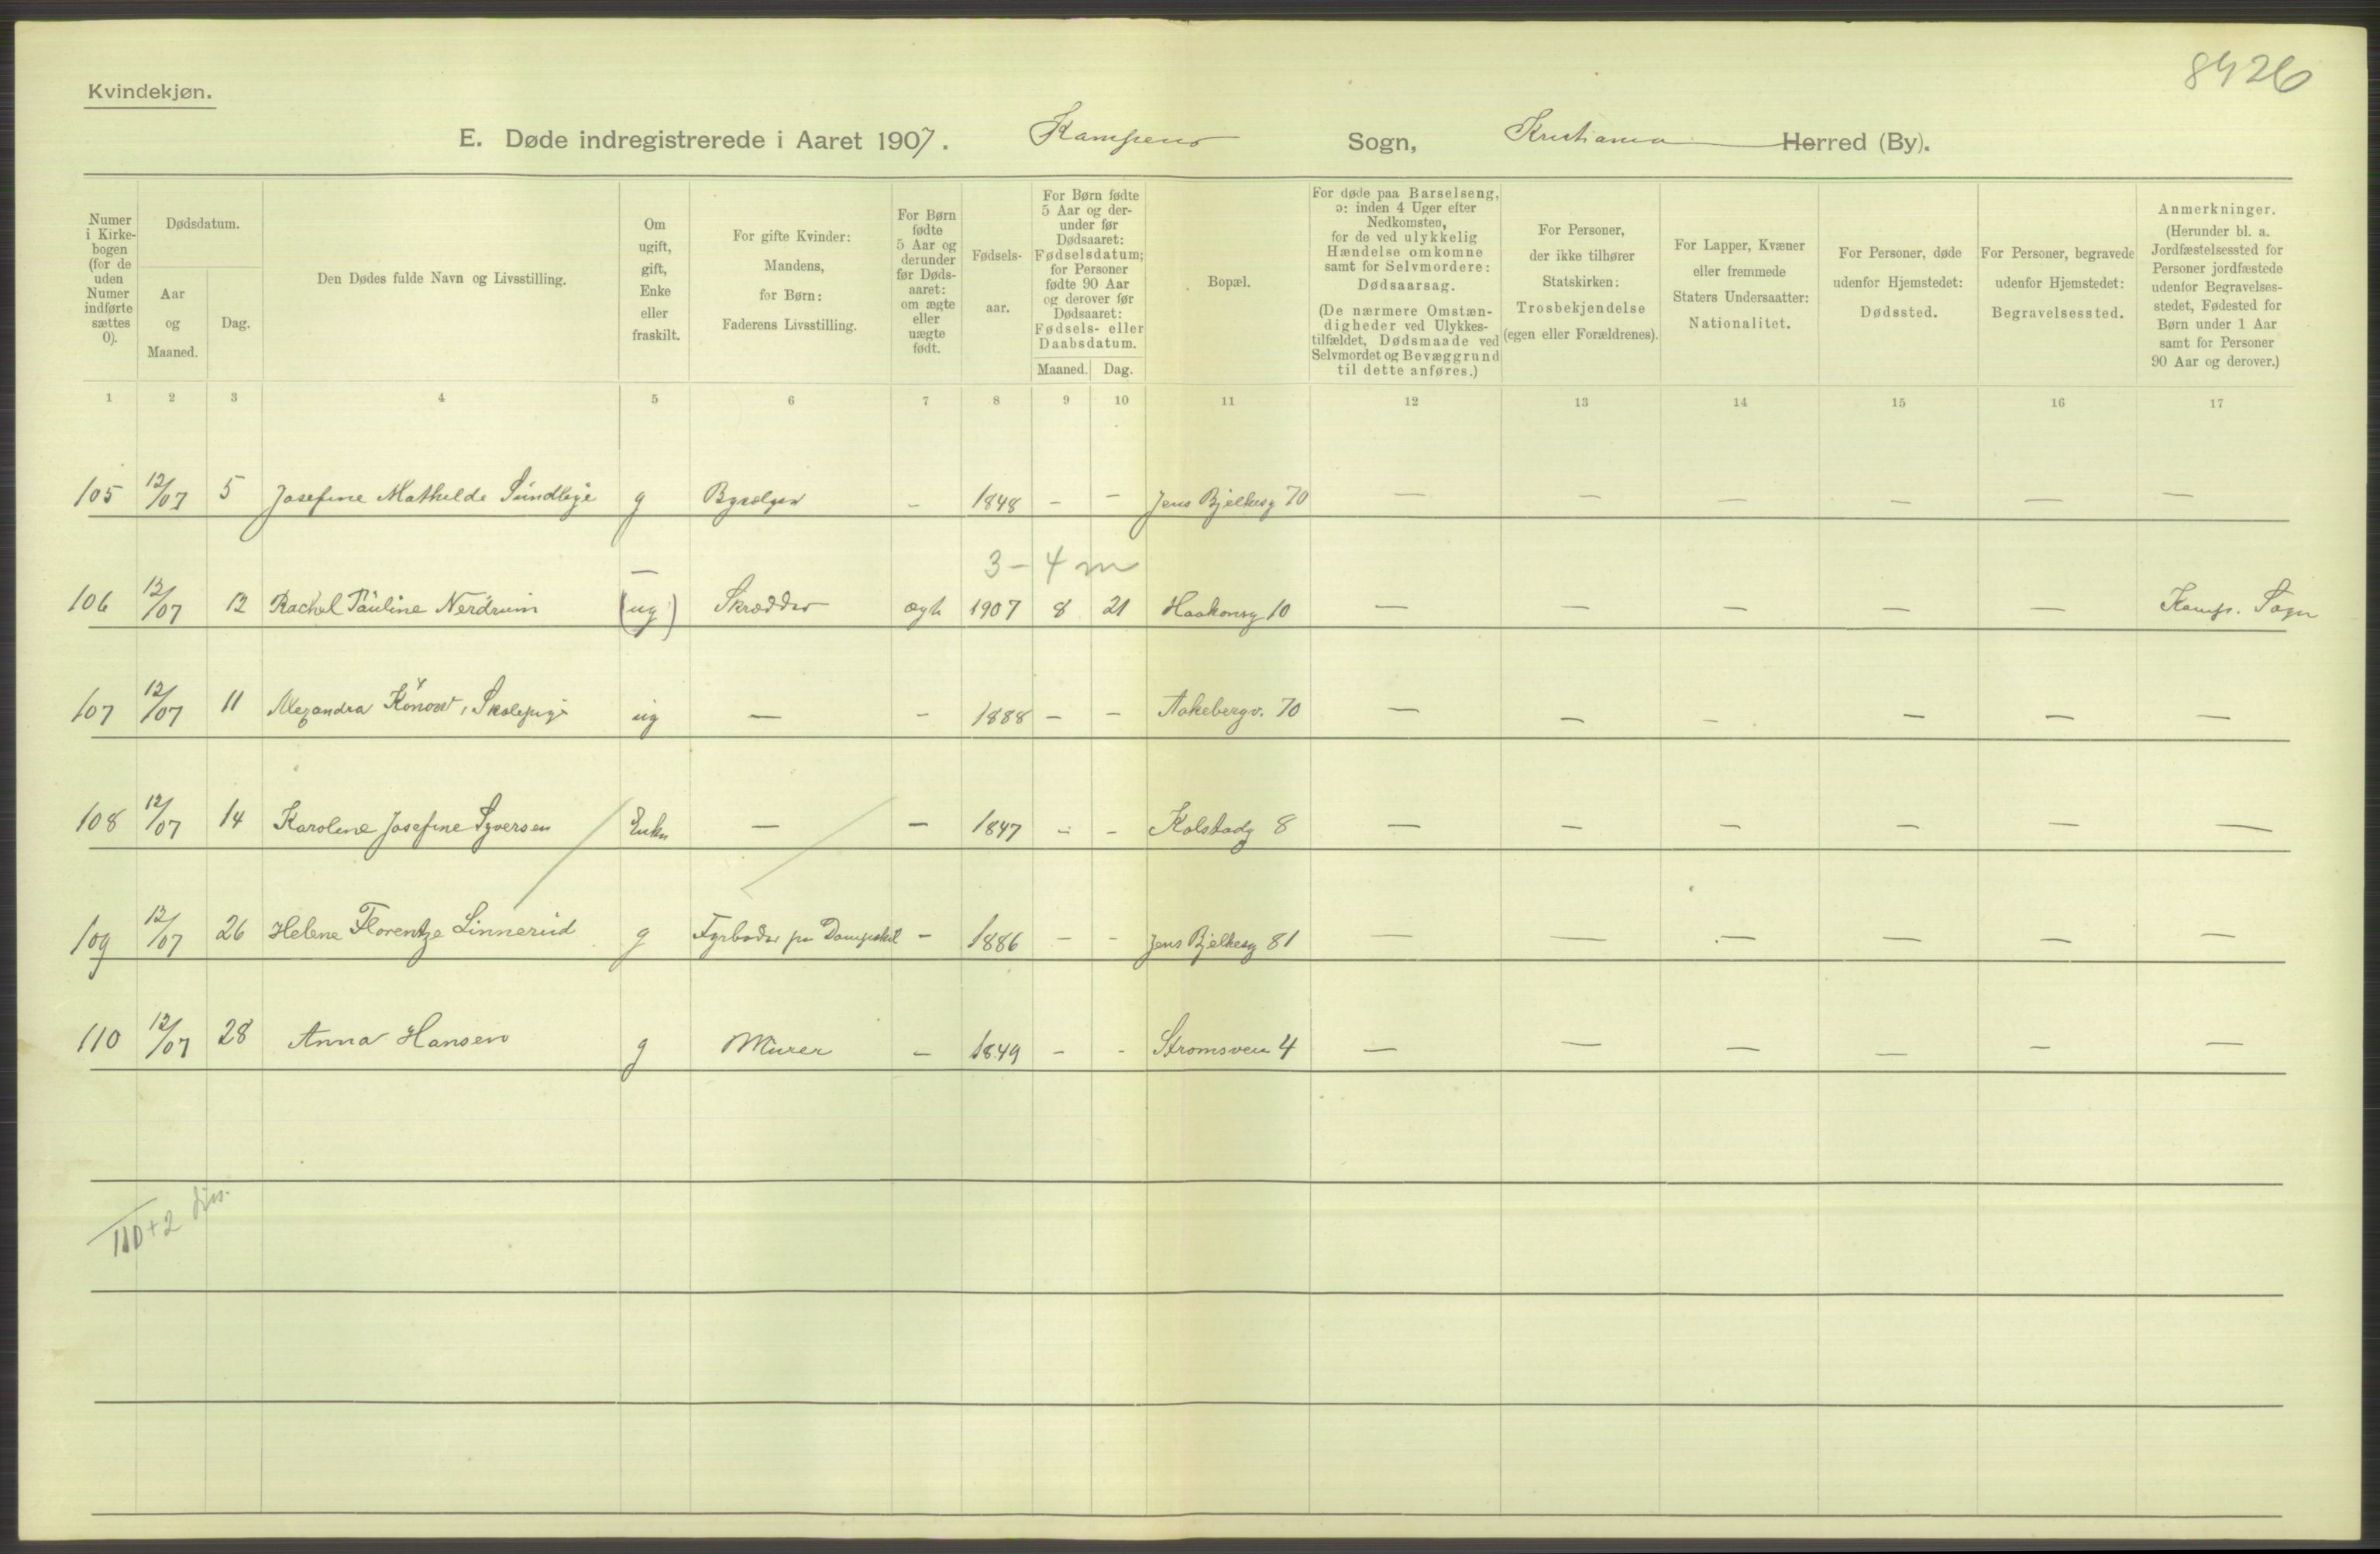 8426
Kvindekjøn.
E. Døde indregistrerede i Aaret 1907. Kampens Sogn, Kristiania Herred (By).
Numer i Kirke-bogen (for de uden Numer indførte sættes 0).
Dødsdatum.
Aar og Maaned.
Dag.
Den Dødes fulde Navn og Livsstilling.
Om ugift, gift, Enke eller fraskilt.
For gifte Kvinder: Mandens, for Børn: Faderens Livsstilling.
For Børn fødte 5 Aar og derunder før Døds-aaret: om ægte eller uægte født.
Fødsels-aar.
For Børn fødte 5 Aar og der-under før Dødsaaret: Fødselsdatum; for Personer fødte 90 Aar og derover før Dødsaaret: Fødsels- eller Daabsdatum.
Maaned. Dag.
Bopæl.
For døde paa Barselseng, ɔ: inden 4 Uger efter Nedkomsten, for de ved ulykkelig Hændelse omkomne samt for Selvmordere: Dødsaarsag.
(De nærmere Omstæn-digheder ved Ulykkes-tilfældet, Dødsmaade ved Selvmordet og Bevæggrund til dette anføres.)
For Personer, der ikke tilhører Statskirken: Trosbekjendelse (egen eller Forældrenes).
For Lapper, Kvæner eller fremmede Staters Undersaatter: Nationalitet.
For Personer, døde udenfor Hjemstedet: Dødssted.
For Personer, begravede udenfor Hjemstedet: Begravelsessted.
Anmerkninger. (Herunder bl. a. Jordfæstelsessted for Personer jordfæstede udenfor Begravelses-stedet, Fødested for Børn under 1 Aar samt for Personer 90 Aar og derover.)
1 2 3 4 5 6 7 8 9 10 11 12 13 14 15 16 17
105 12/07 5 Josefine Mathilde Sundbye g – 1848 – – Jens Bjelkesg 70 – – – – – –
3 – 4 m
106 12/07 12 Rachel Pauline Nerdrum (ug) Skrædder ægte 1907 8 21 Haakonsg 10 – – – – – Kamp. Sogn
107 12/07 11 Alexandra Konow, Skolepige ug – – 1888 – – Aakebergv. 70 – – – – – –
108 12/07 14 Karoline Josefine Syversen Enke – – 1847 – – Kolstadg 8 – – – – – –
109 12/07 26 Helene Florentze Linnerud g Fyrbøder pr Dampskib – 1886 – – Jens Bjelkesg 81 – – – – – –
110 12/07 28 Anna Hansen g Murer – 1849 – – Strømsveien 4 – – – – – –
110+2